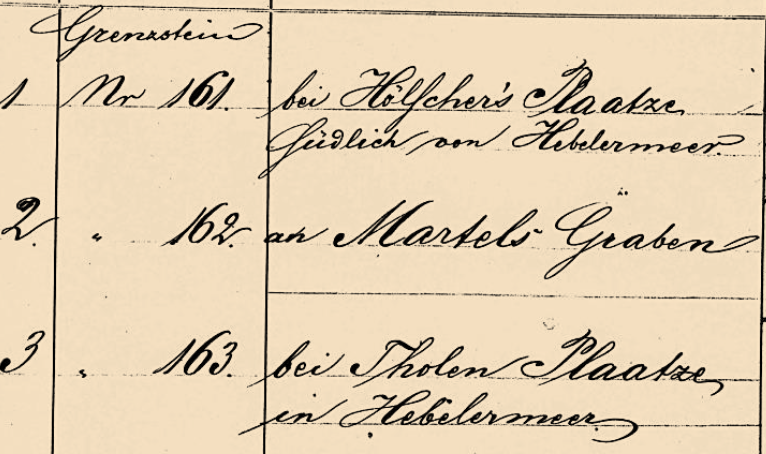 Grenzstein
1 Nr 161. bei Hölscher's Plaatze
südlich von Hebelermeer.
2. " 162. an Martels Graben
3 " 163. bei Tholen Plaatze,
in Hebelermeer.